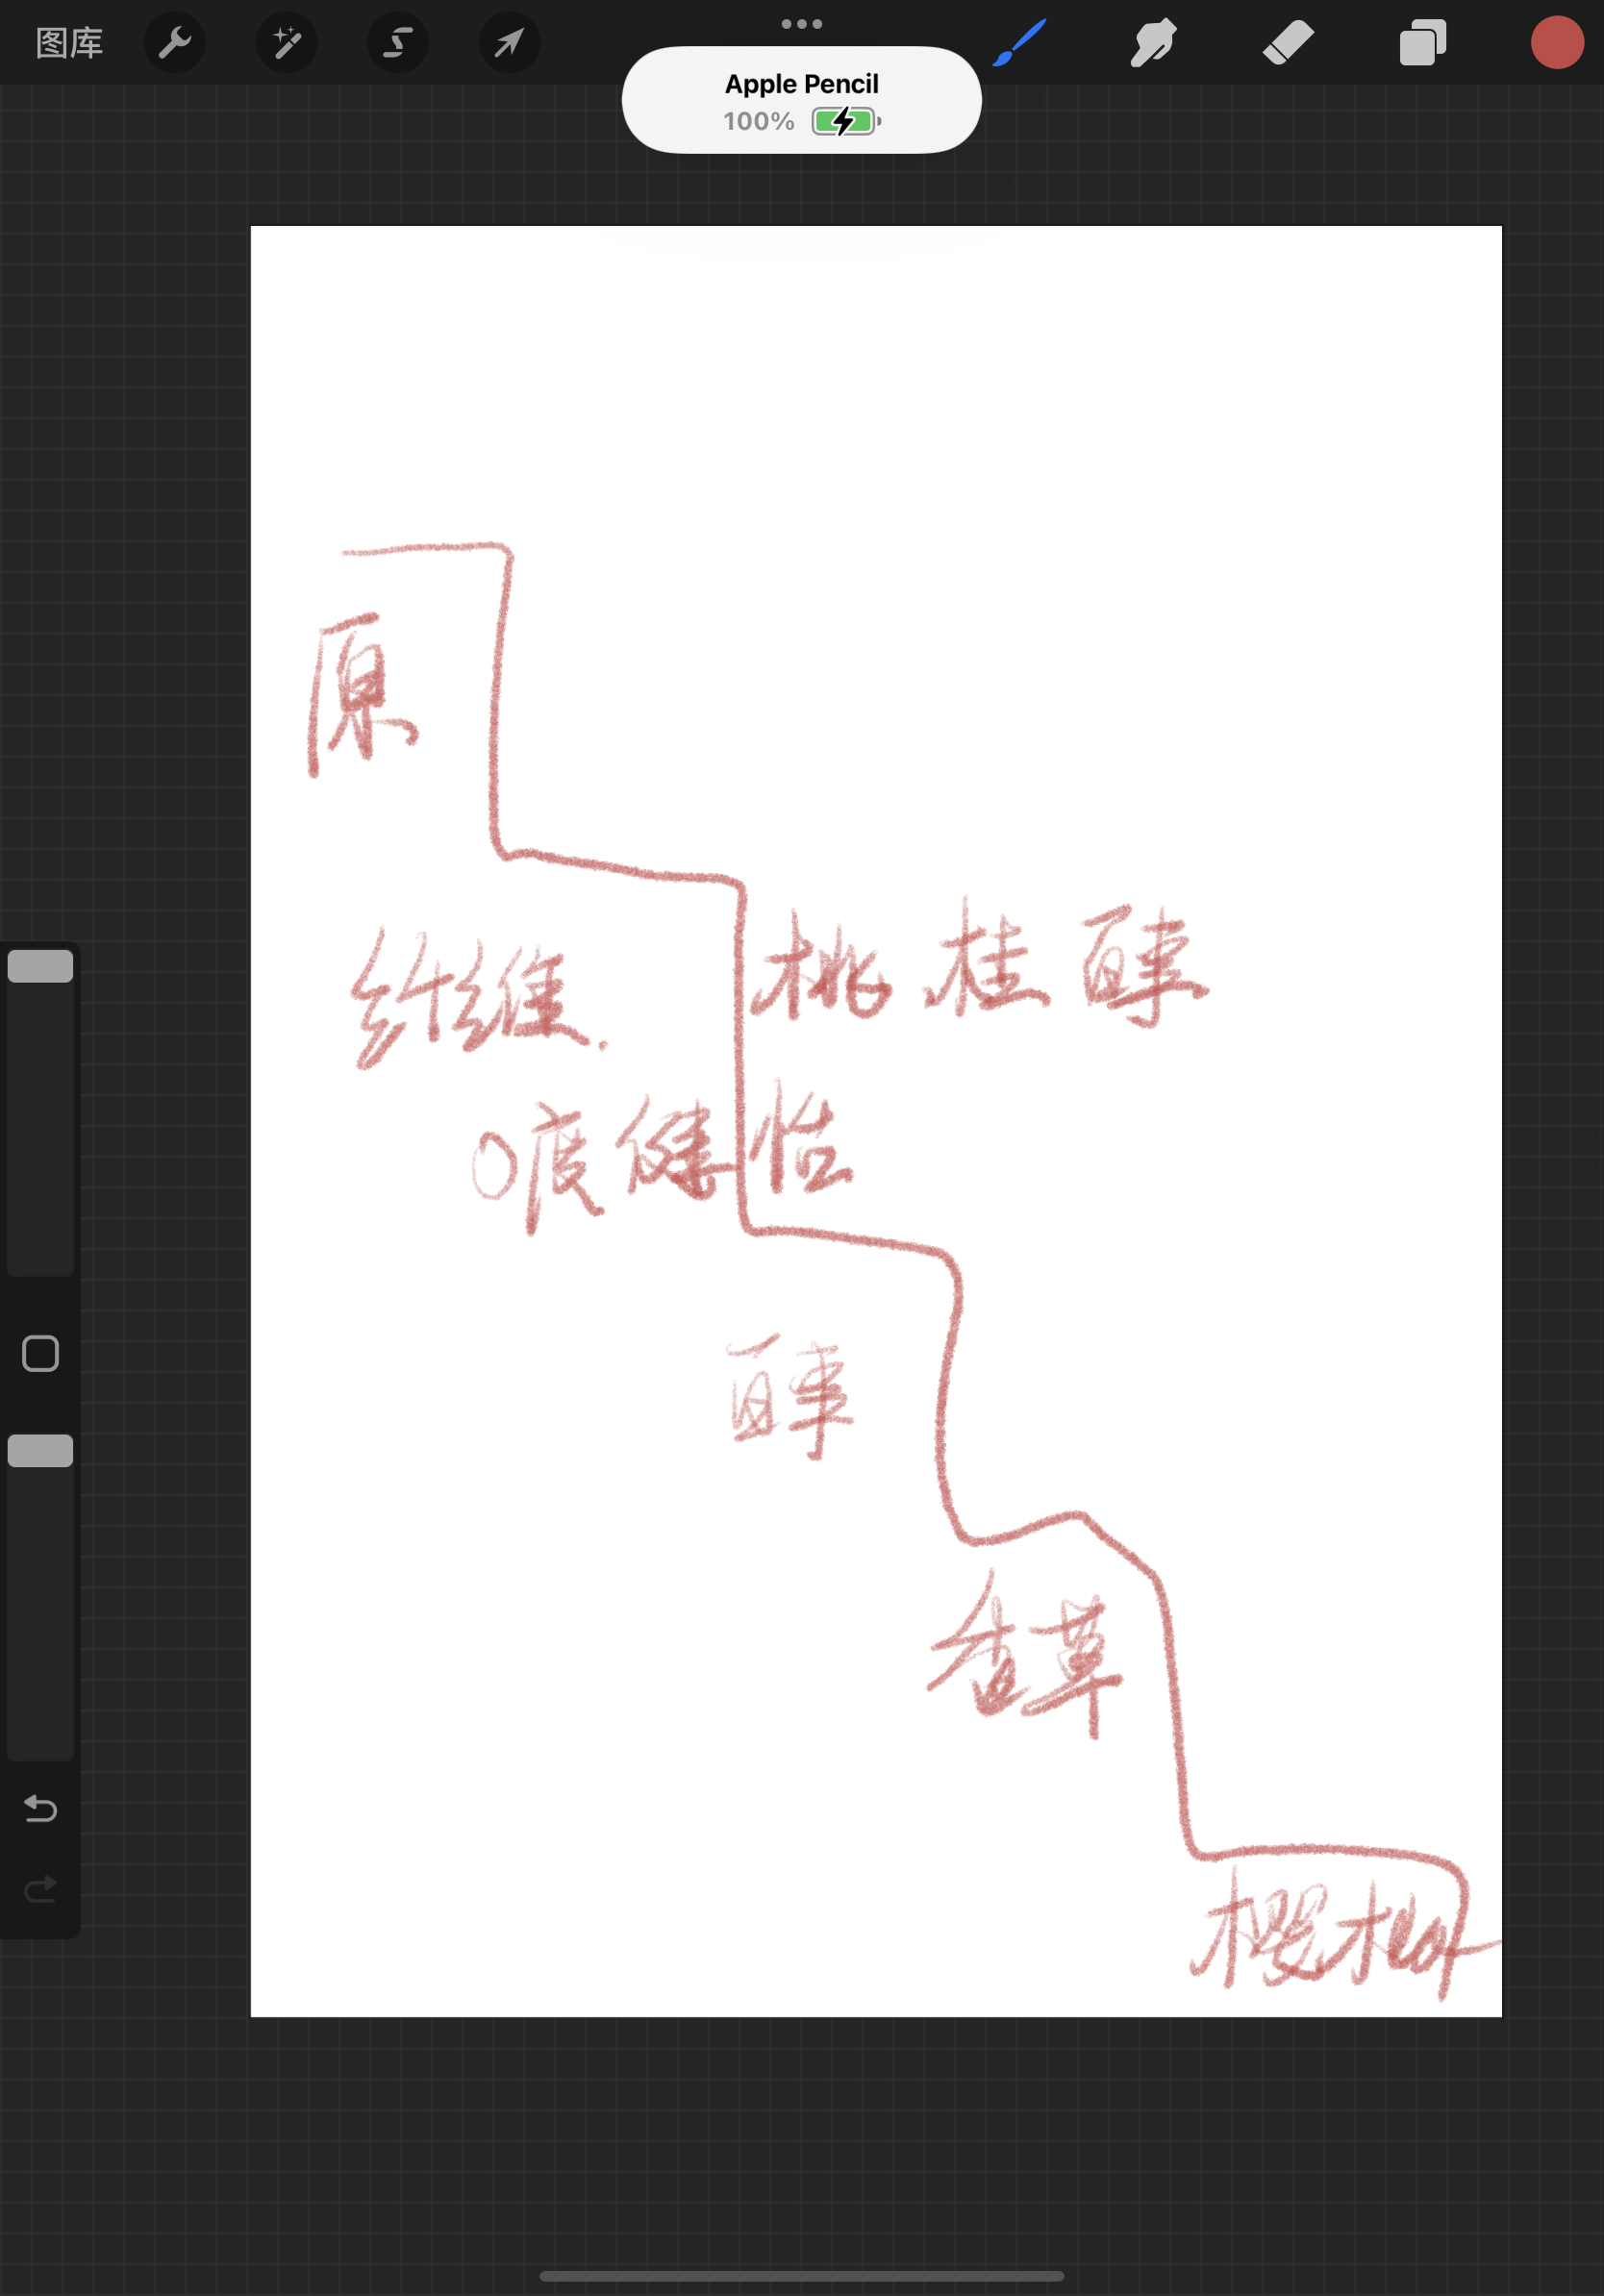 图库
Apple Pencil
100%
原
纤维.
桃桂醇
0度健怡
醇
香草
樱桃